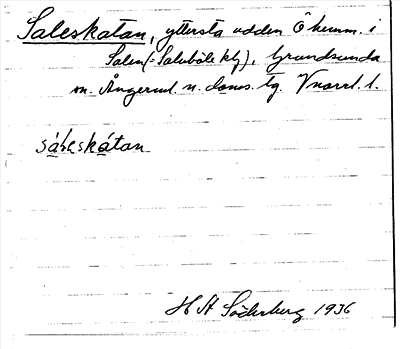 Saleskatan, yttersta udden Ö hemm. i
Salen (= Saluböle by), Grundsunda
sn. Ångerml. n. doms. tg. Vnorrl. l.
sáleskátan
H A Söderberg 1936